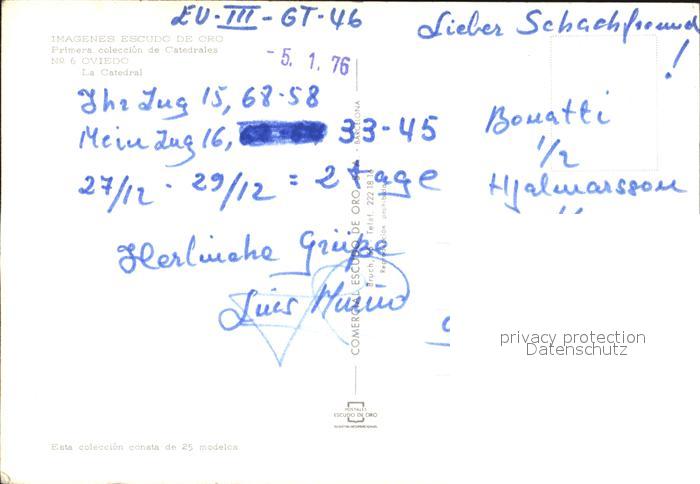 EU-III-GT-46
Lieber Schachfreund
!
IMAGENES ESCUDO DE ORO
Primera colección de Catedrales
Nº 6 OVIEDO
La Catedral
- 5. 1. 76
Ihr Zug 15, 68-58
Mein Zug 16, 33-45
27/12 - 29/12 = 2 tage
Bonatti
1/2
Hjalmarsson
Herzliche Grüße
Luis Muiño
COMERCIAL ESCUDO DE ORO, S.A. - BARCELONA
privacy protection
Datenschutz
POSTALES
ESCUDO DE ORO
Esta colección consta de 25 modelos